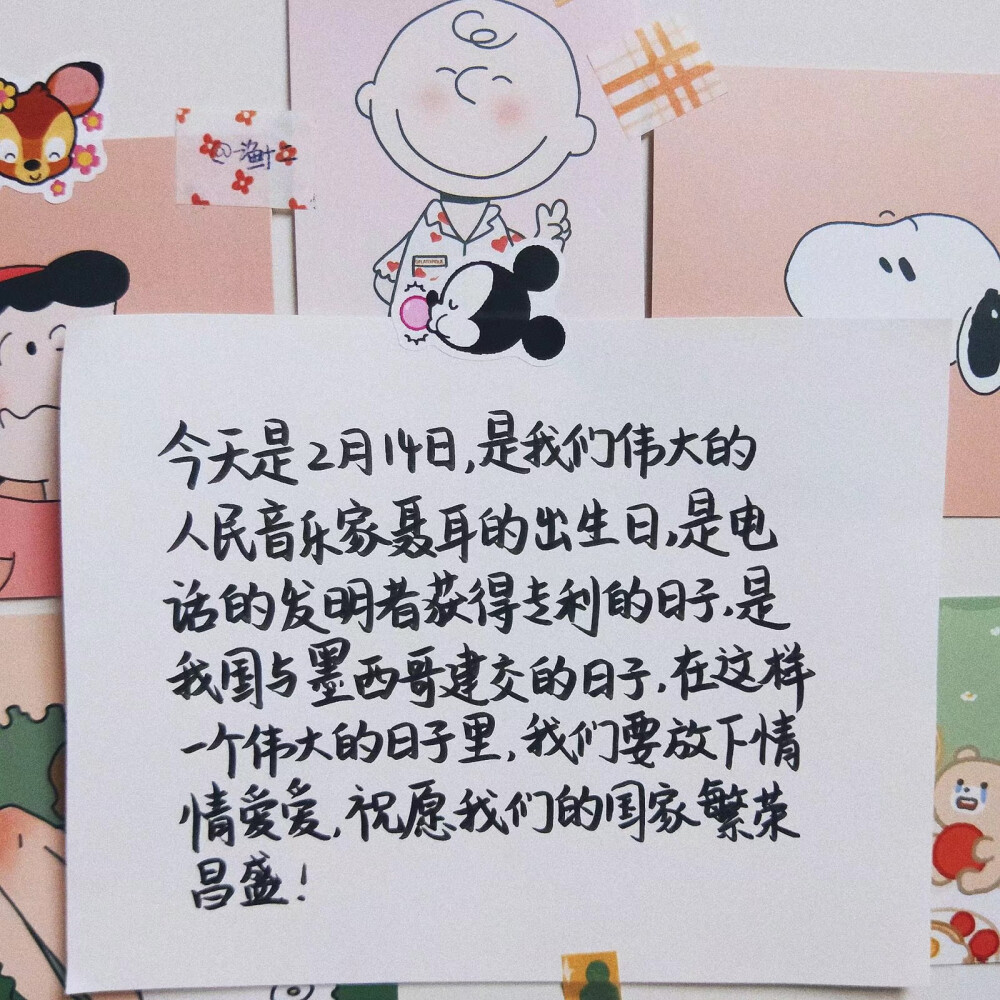 今天是2月14日,是我们伟大的
人民音乐家聂耳的出生日,是电
话的发明者获得专利的日子,是
我国与墨西哥建交的日子,在这样
一个伟大的日子里,我们要放下情
情爱爱,祝愿我们的国家繁荣
昌盛!